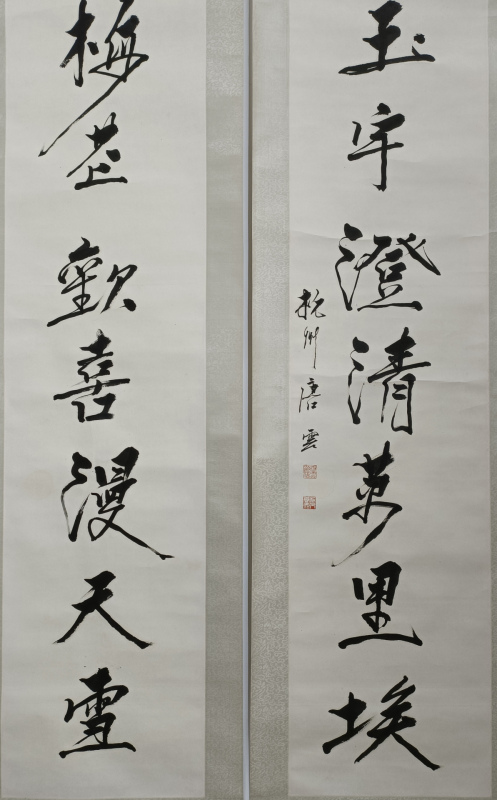 玉宇澄清萬里埃
杭州唐雲
梅花歡喜漫天雪